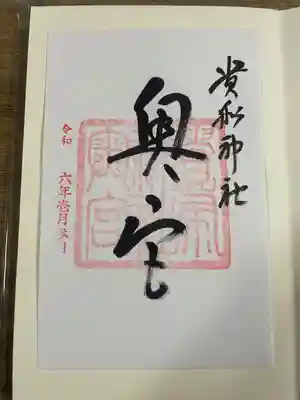 貴船神社
奥宮
令和
六年壱月